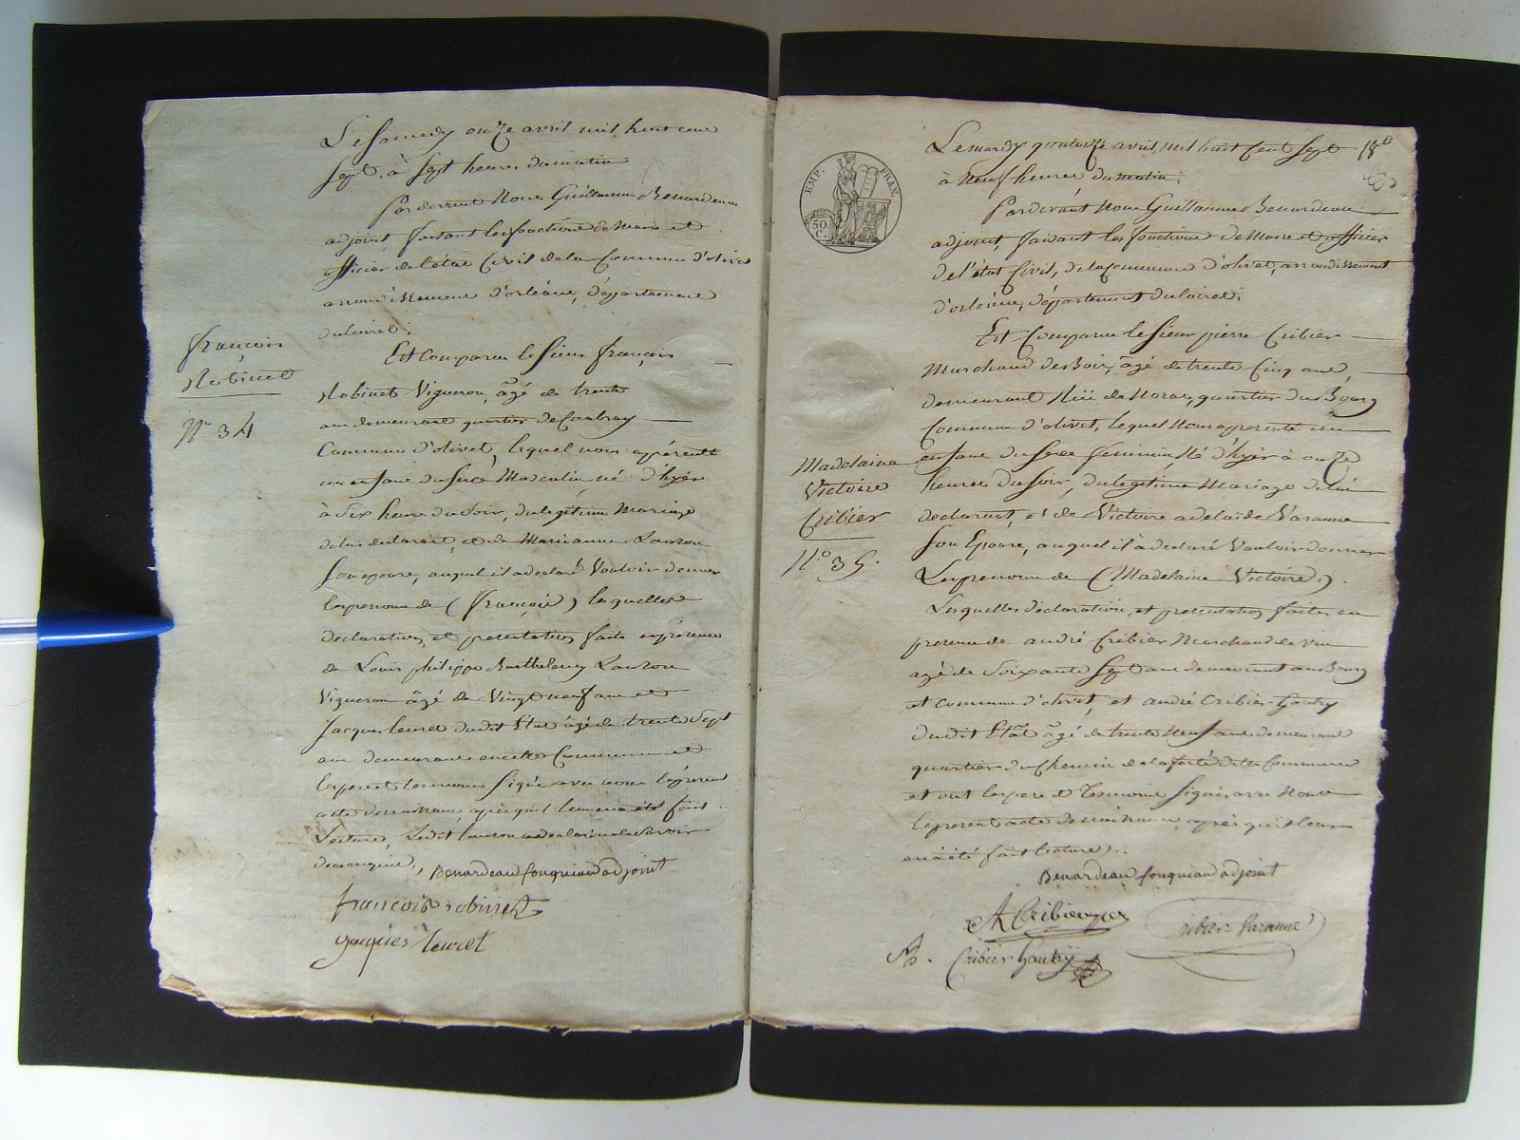 Le Samedy onze avril mil huit cent
Sept, à Sept heures du matin
Pardevant Nous Guillaume Benardeau
adjoint faisant les fonctions de Maire et
officier de l'état Civil de la Commune d'olivet
arrondissement d'orléans, département
du loiret;
françois
Robinet
N° 34
Est Comparu le Sieur françois
Robinet Vigneron, âgé de trente
ans demeurant quartier de
Commune d'olivet, lequel nous a présenté
un enfant du Sexe Masculin, né d'hyer
à Six heures du Soir, du légitime Mariage
de lui déclarant, et de Marieanne Lauzon
Son épouse, auquel il a déclaré Vouloir donner
les prenoms de (françois) lesquelles
declaration et présentation faite en présence
de Louis philippe Barthelemy Lauzon
Vigneron âgé de Vingt neuf ans et
Jacques leuret dudit Etat âgé de trente Sept
ans demeurants en cette Commune et
le pere et Signé avec nous le présent
acte de naissance, après qu'il leur en a été fait
Lecture, Ledit Lauzon a déclaré ne le Savoir
Benardeau fouqueau adjoint
francois robinet
jacques leuret
EMP. FRAN.
50 C.
Le mardy quatorze avril, mil huit Cent Sept 18
à Neuf heures du matin;
Pardevant Nous Guillaume Benardeau
adjoint, faisant les fonctions de Maire et officier
de l'état Civil, de la Commune d'olivet, arrondissement
d'orléans, département du loiret;
Est Comparu le Sieur pierre Cribier
Marchand de Bois, âgé de trente Cinq ans,
demeurant quartier du Bourg
Commune d'olivet, lequel Nous a présenté un
Madelaine
Victoire
Cribier
N° 35.
enfant du Sexe feminin, Né d'hyer à onze
heures du Soir, du légitime Mariage de lui
declarant, et de Victoire adelaide Varanne
Son Epouse, auquel il a déclaré Vouloir donner
Les prenoms de (Madelaine Victoire).
Lesquelles déclaration, et présentation faites en
presence de andré Cribier Marchand de vin
agé de Soixante Sept ans demeurant au Bourg
et commune d'olivet, et andré Cribier hautry
dudit Etat âgé de trente Neuf ans demeurant
quartier du Chemin de la ferté dite Commune
et ont les pere et temoins Signés avec Nous
le present acte de naissance après qu'il leur
en a été fait lecture.
Benardeau fouqueau adjoint
A Cribier
Cribier Varanne
Cribier hautry